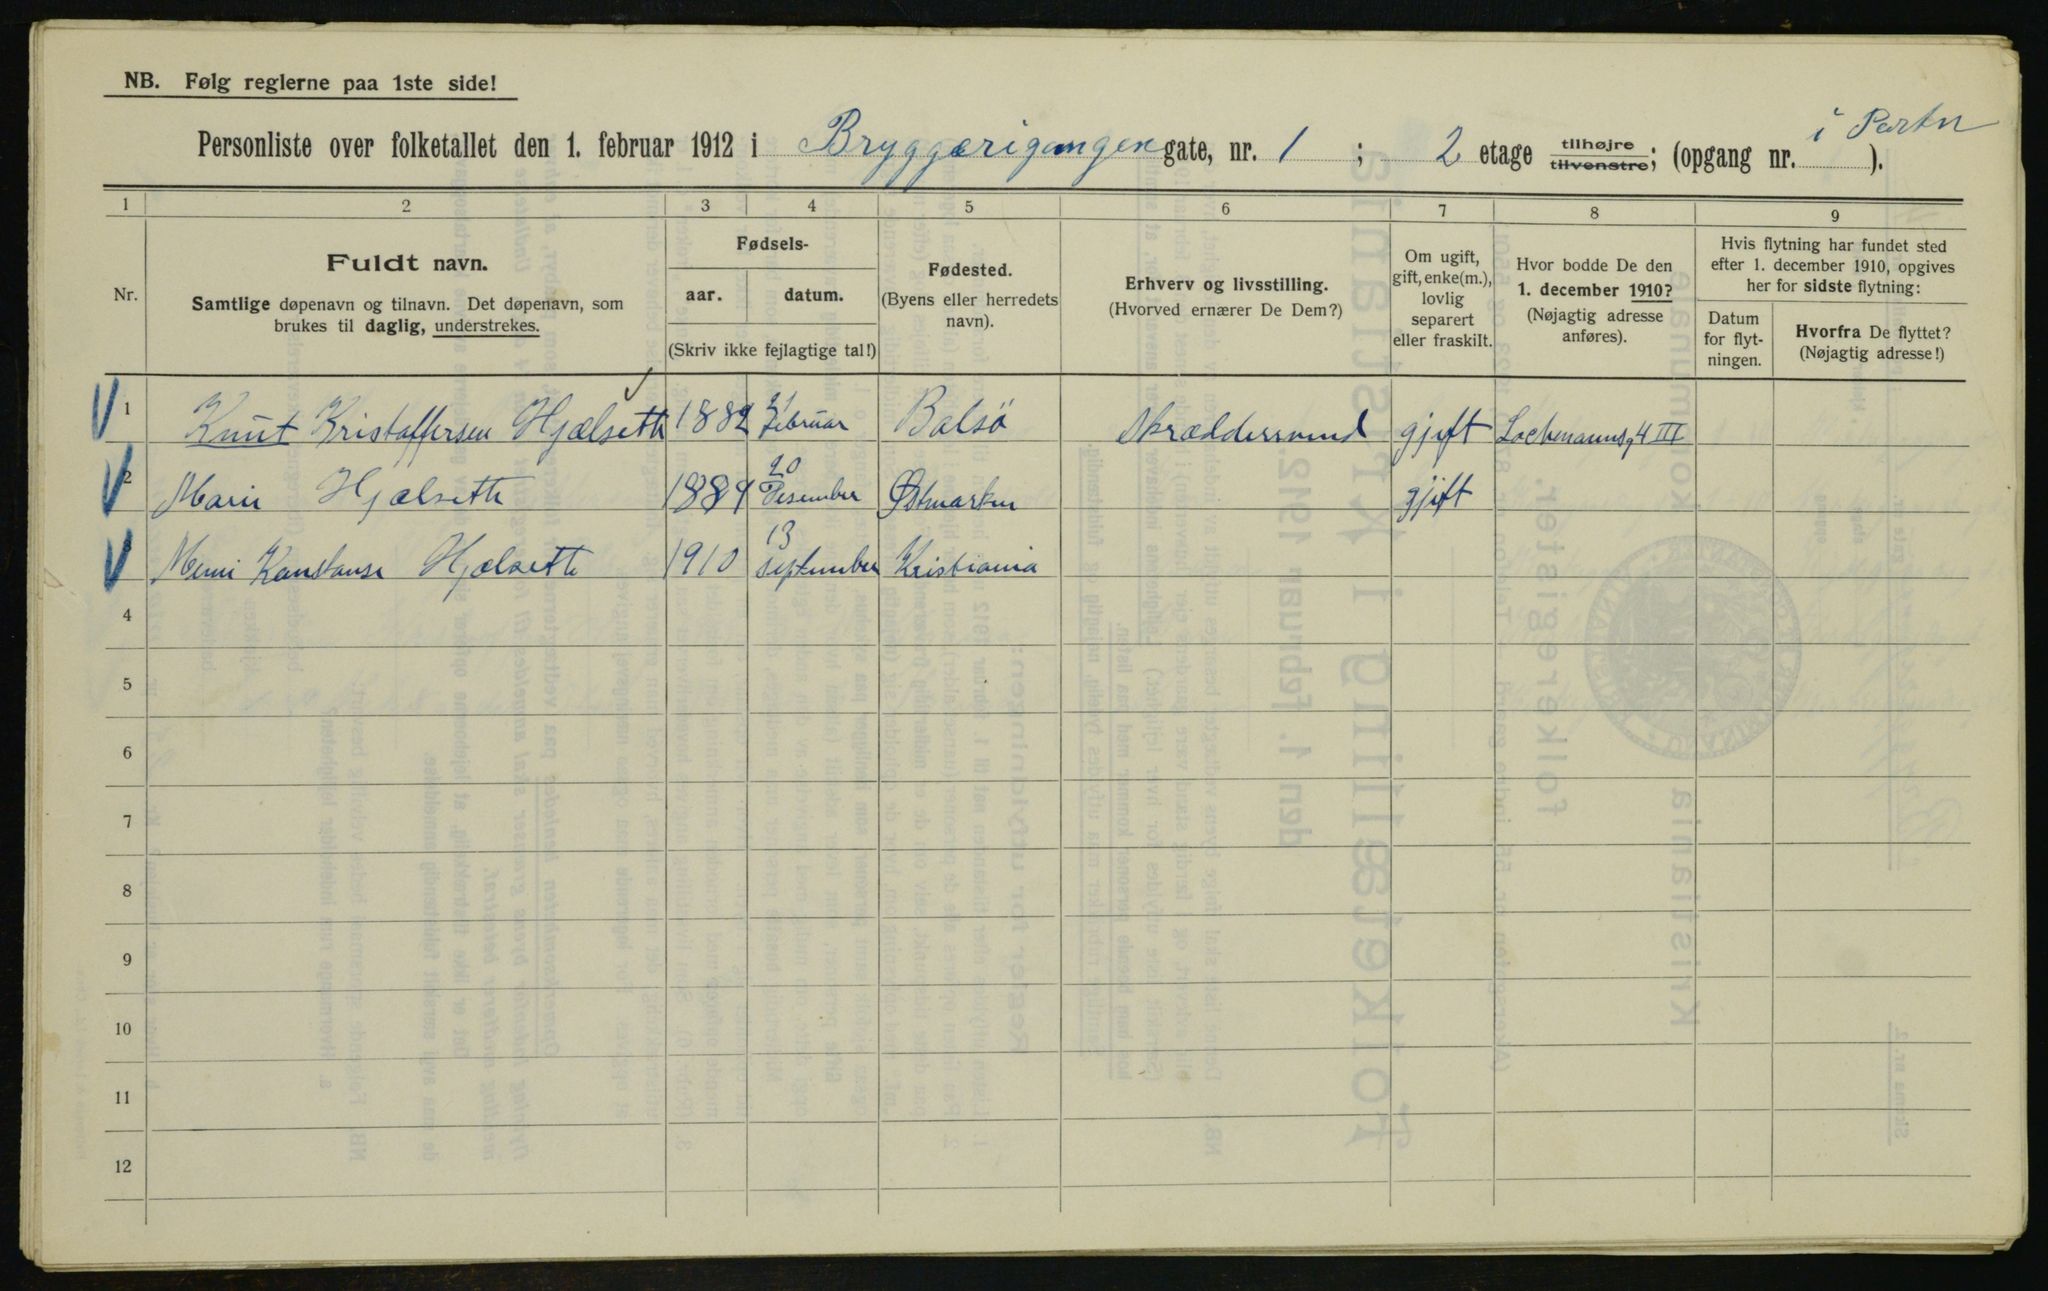 NB. Følg reglerne paa 1ste side!
i Porten
Personliste over folketallet den 1. februar 1912 i Bryggærigangen gate, nr. 1; 2 etage tilhøjre tilvenstre; (opgang nr. ).
1 2 3 4 5 6 7 8 9
Nr.
Fuldt navn.
Samtlige døpenavn og tilnavn. Det døpenavn, som
brukes til daglig, understrekes.
Fødsels-
aar. datum.
(Skriv ikke fejlagtige tal!)
Fødested.
(Byens eller herredets
navn).
Erhverv og livsstilling.
(Hvorved ernærer De Dem?)
Om ugift,
gift, enke(m.),
lovlig
separert
eller fraskilt.
Hvor bodde De den
1. december 1910?
(Nøjagtig adresse
anføres).
Hvis flytning har fundet sted
efter 1. december 1910, opgives
her for sidste flytning:
Datum
for flyt-
ningen.
Hvorfra De flyttet?
(Nøjagtig adresse!)
1 Knut Kristoffersen Hjælseth 1882 Februar Bolsö Skræddersvend gjift Lochmannsg 4 III
2 Marie Hjælseth 20 Desember Østmarken gjift
3 Konstanse Hjælseth 1910 13 September Kristiania
4
5
6
7
8
9
10
11
12